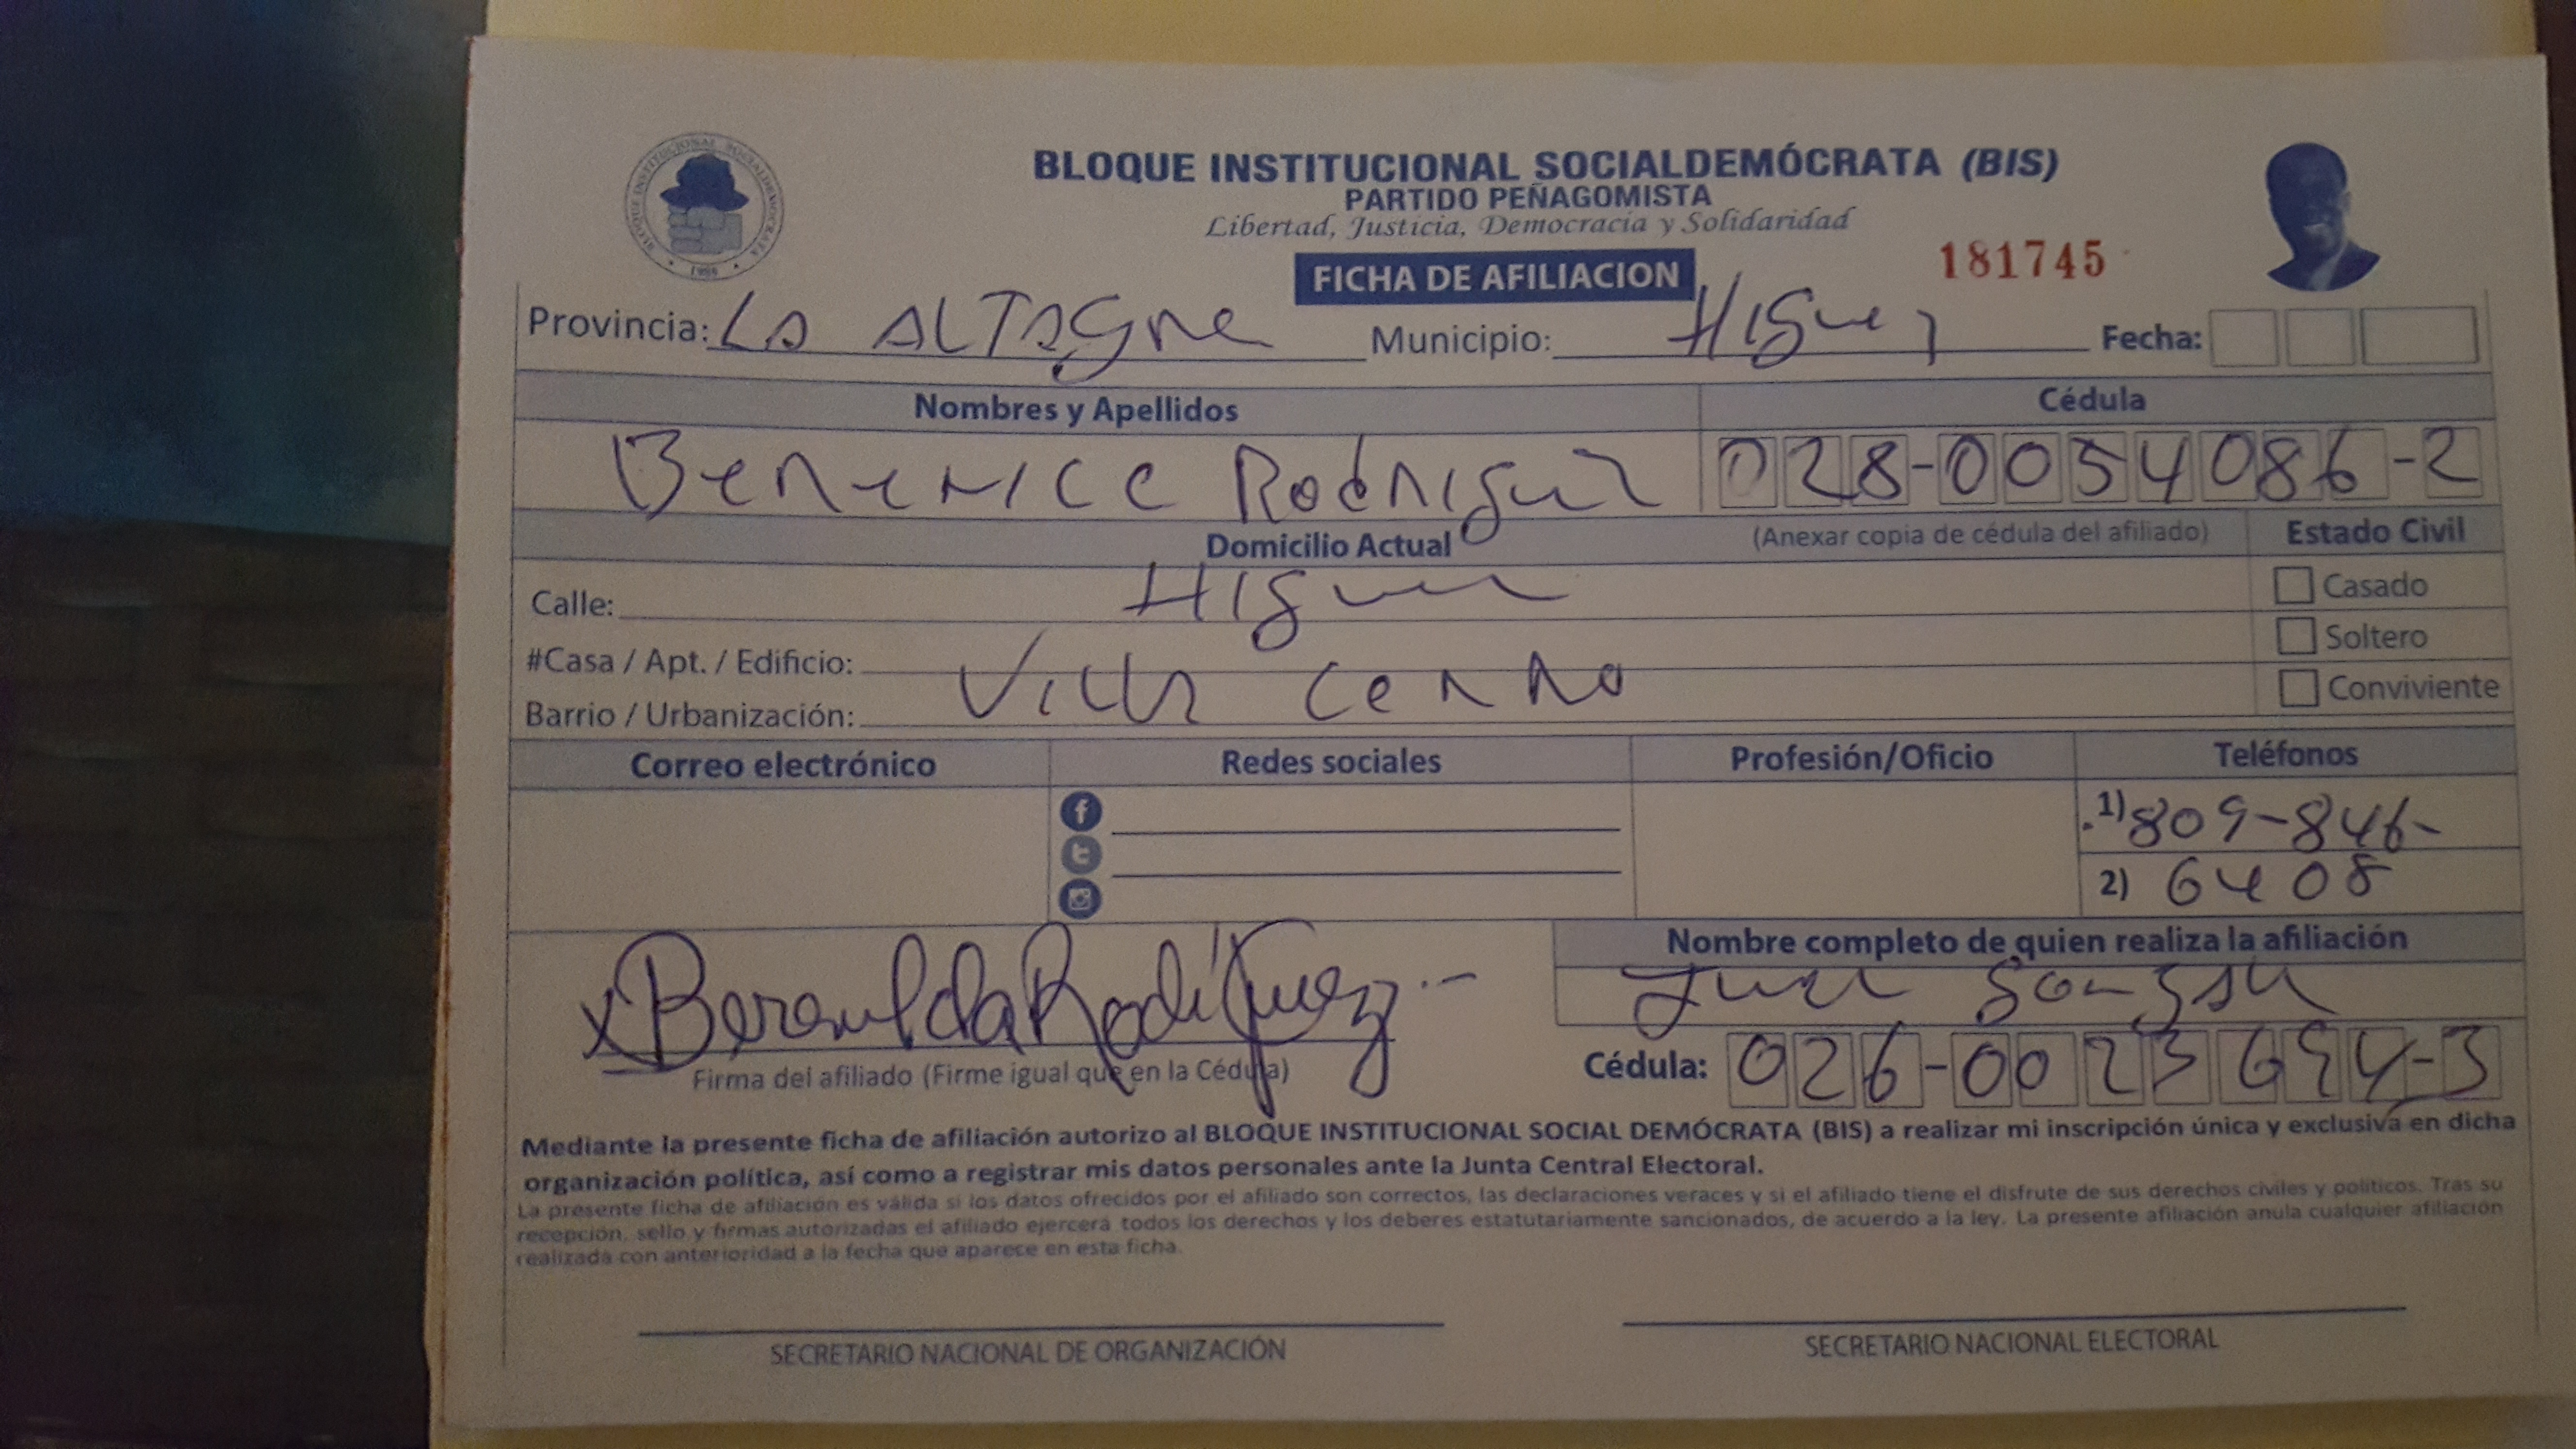 BLOQUE INSTITUCIONAL SOCIALDEMÓCRATA (BIS)
PARTIDO PEÑAGOMISTA
Libertad, Justicia, Democracia y Solidaridad
BLOQUE INSTITUCIONAL SOCIALDEMOCRATA
FICHA DE AFILIACION
181745
Provincia: La Altagra Municipio: Higuey Fecha:
Nombres y Apellidos Cédula
Rodriguez 028-0054086-2
Domicilio Actual (Anexar copia de cédula del afiliado) Estado Civil
Calle: Casado
#Casa / Apt. / Edificio: Soltero
Barrio / Urbanización: Villa Cerro Conviviente
Correo electrónico Redes sociales Profesión/Oficio Teléfonos
1) 809-846-
2) 6408
Nombre completo de quien realiza la afiliación
Rodríguez
Firma del afiliado (Firme igual que en la Cédula)
Cédula: 026-0023694-3
Mediante la presente ficha de afiliación autorizo al BLOQUE INSTITUCIONAL SOCIAL DEMÓCRATA (BIS) a realizar mi inscripción única y exclusiva en dicha
organización política, así como a registrar mis datos personales ante la Junta Central Electoral.
La presente ficha de afiliación es válida si los datos ofrecidos por el afiliado son correctos, las declaraciones veraces y si el afiliado tiene el disfrute de sus derechos civiles y políticos. Tras su
recepción, sello y firmas autorizadas el afiliado ejercerá todos los derechos y los deberes estatutariamente sancionados, de acuerdo a la ley. La presente afiliación anula cualquier afiliación
realizada con anterioridad a la fecha que aparece en esta ficha.
SECRETARIO NACIONAL DE ORGANIZACIÓN SECRETARIO NACIONAL ELECTORAL